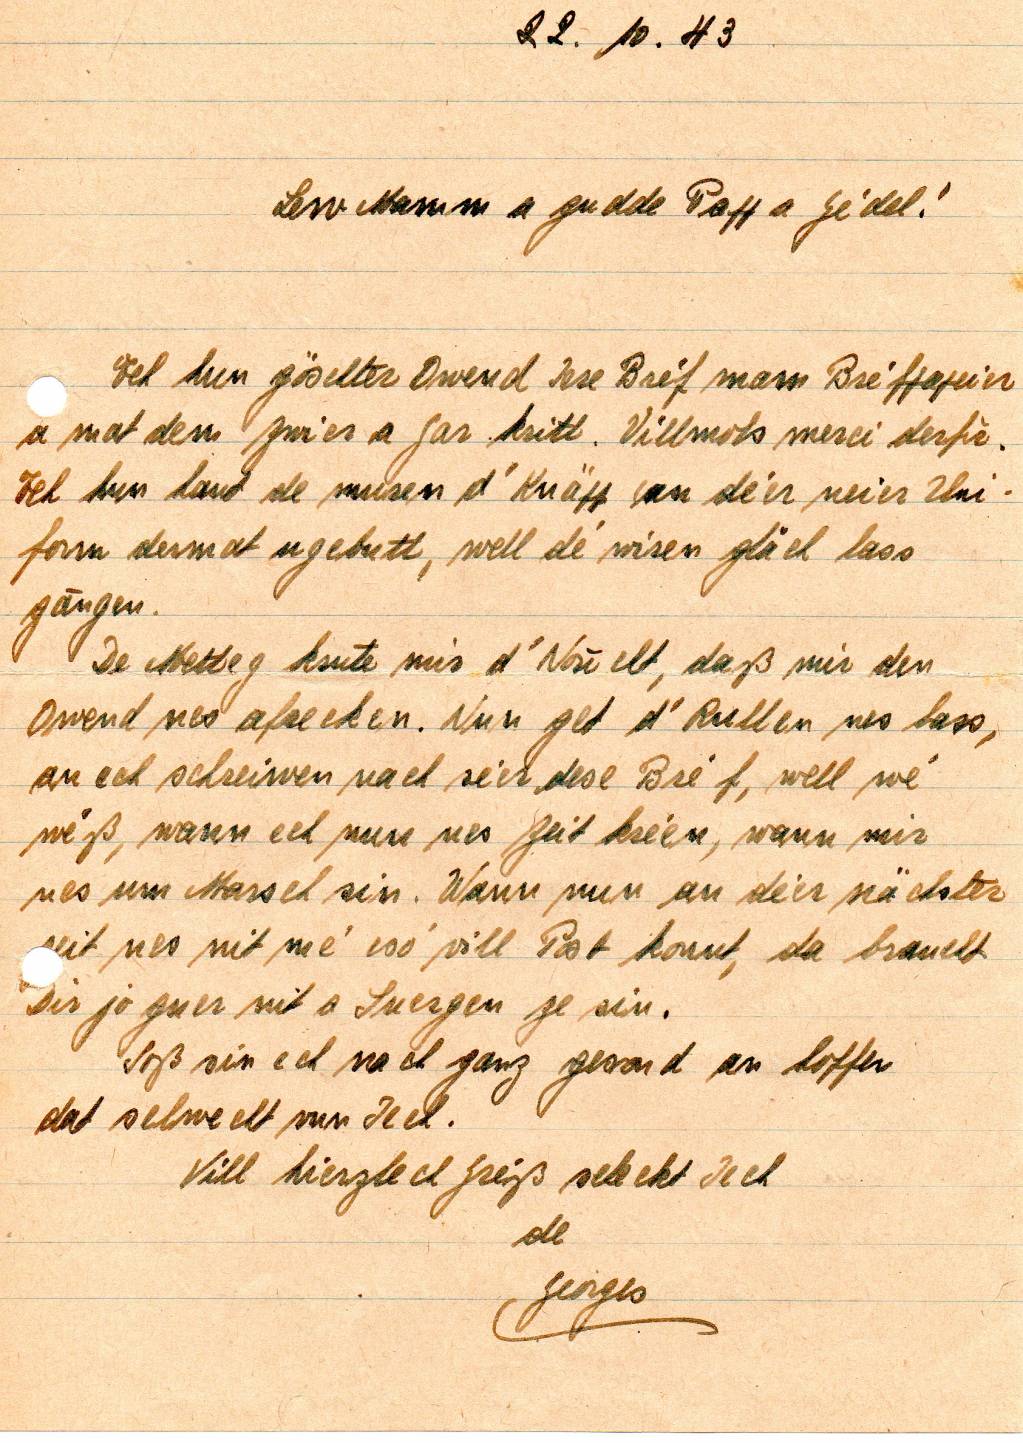 22. 10. 43
Lew Mamm a gudde Papp a Gédel!
Ech hun göschter Owend Iere Bréf mam Bréfpapeier
a mat dem Zwier a Gar kritt. Villmols merci derfir.
Ech hun haut de muren d'Knäpp un déer neier Uni-
form dermat ugebutt, well dé wiren gläch lass
gangen.
De Metteg krute mir d'Noricht, daß mir den
Owend nes afrecken. Nun get d'Rullen nes lass,
an ech schreiwen nach séier dese Bréf, well wé
wéß, wann ech nun nes Zeit kréen, wann mir
nes um Marsch sin. Wann nun an déer nächster
zeit nes nit mé esó vill Post konnt, da braucht
Dir jo guer nit a Suergen ze sin.
Soß sin ech nach ganz gesond an hoffen
dat selwecht vun Iech.
Vill hierzlech Gréiß scheckt Iech
de
Georges